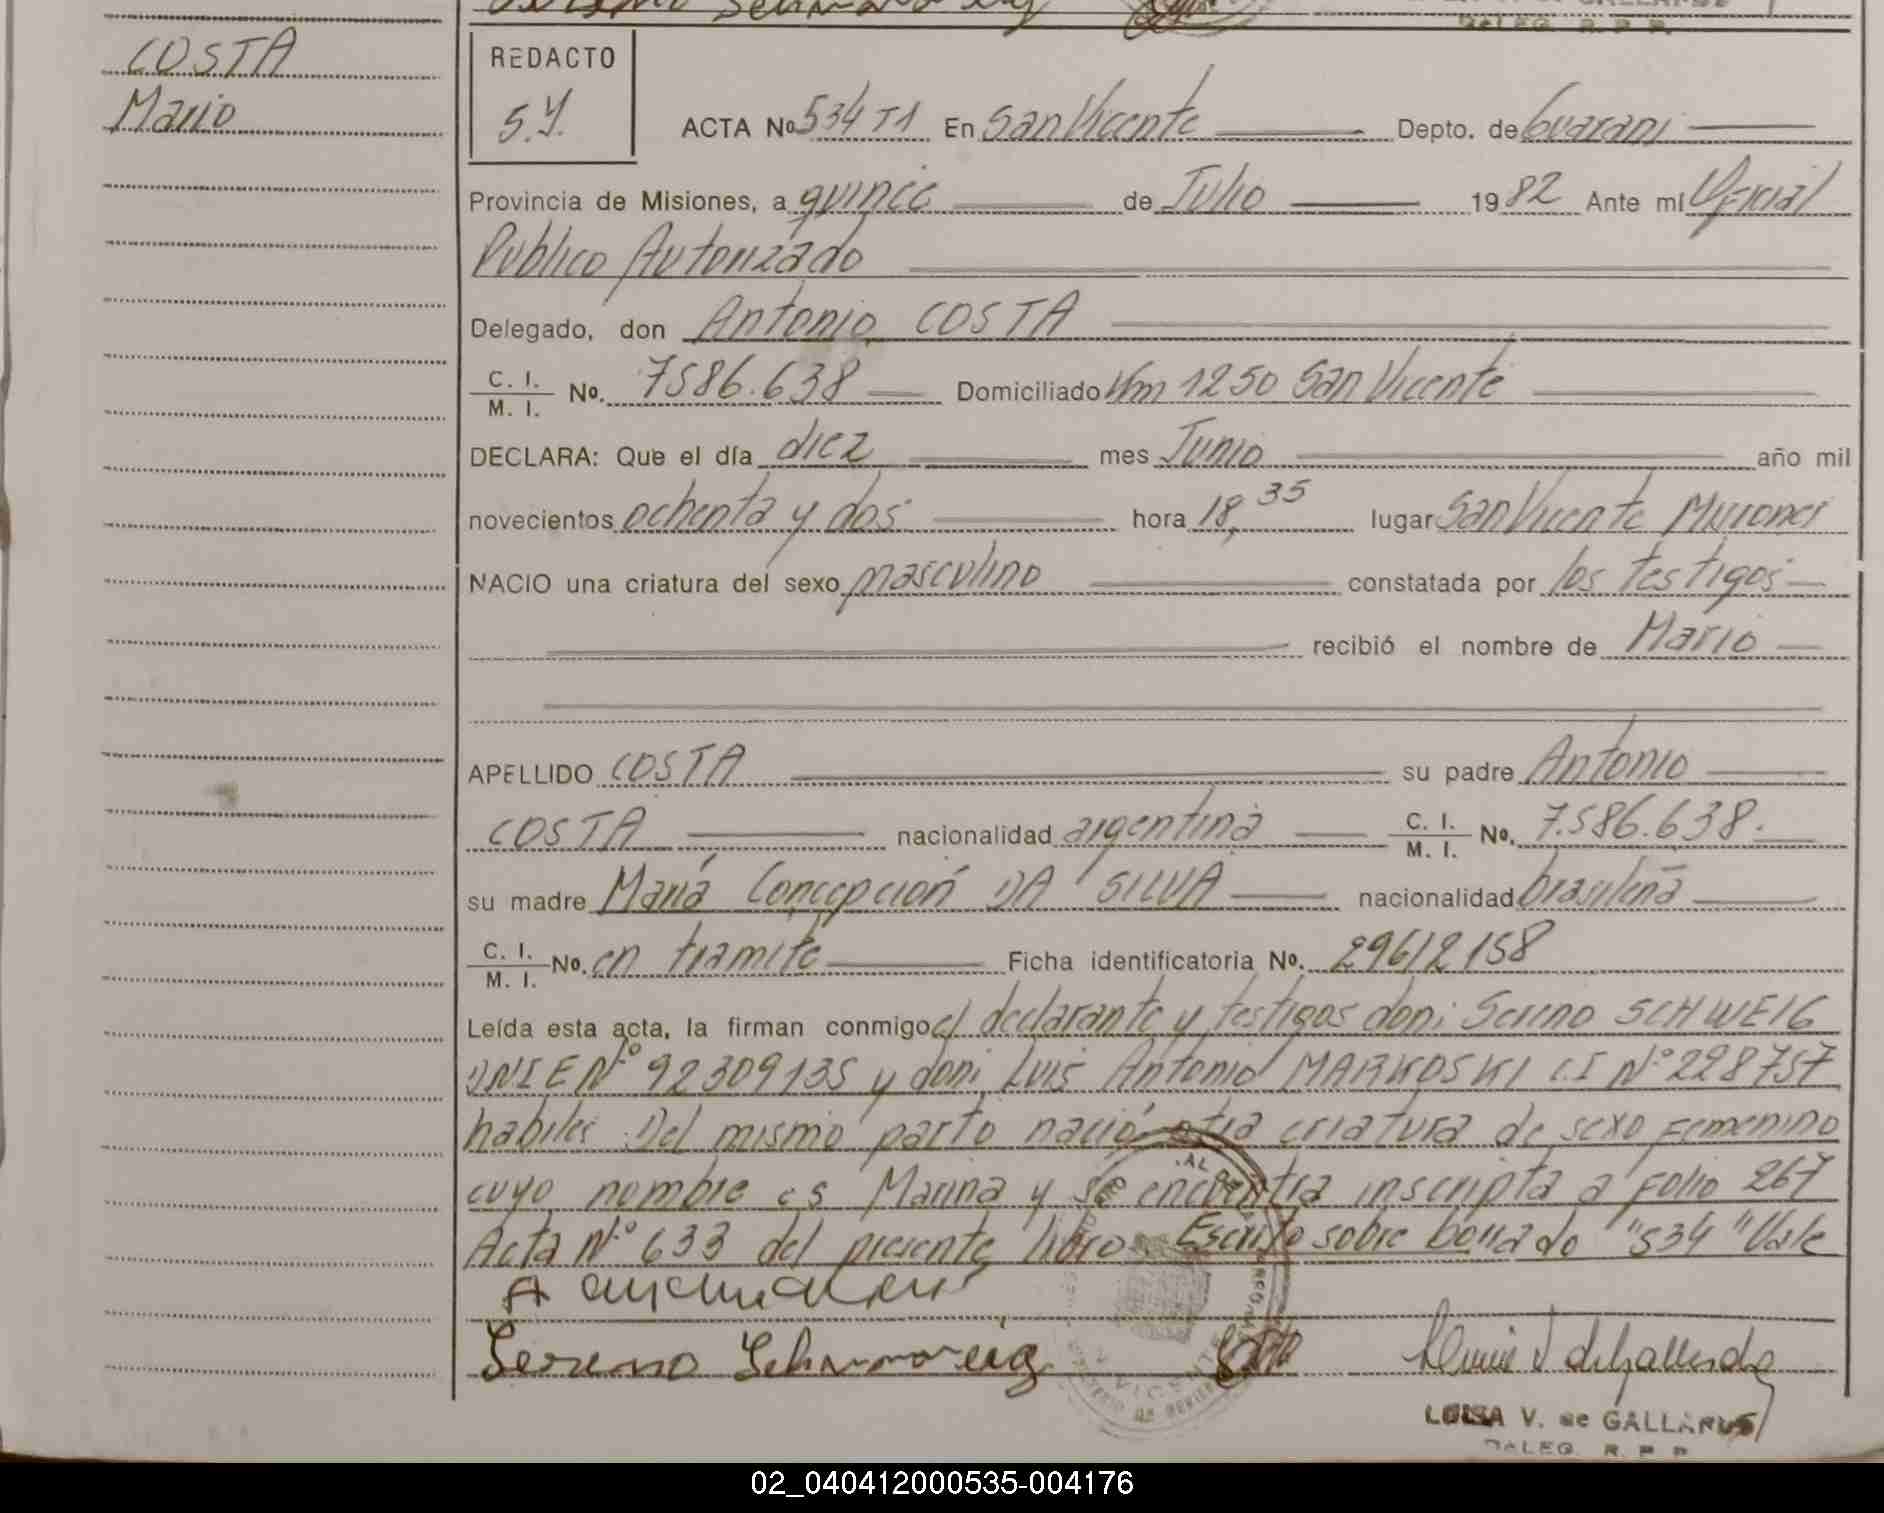 COSTA
Mario
REDACTO
S.Y.
ACTA No 534 T1 En San Vicente Depto. de Guarani
Provincia de Misiones, a quince de Julio 1982 Ante mi Oficial
Publico Autorizado
Delegado, don Antonio COSTA
C. I. / M. I. No. 7586.638 Domiciliado Km 1250 San Vicente
DECLARA: Que el día diez mes Junio año mil
novecientos ochenta y dos hora 18,35 lugar San Vicente Misiones
NACIO una criatura del sexo masculino constatada por los testigos
recibió el nombre de Mario
APELLIDO COSTA su padre Antonio
COSTA nacionalidad argentina C. I. / M. I. No. 7.586.638.
su madre María Concepción DA SILVA nacionalidad brasileña
C. I. / M. I. No. en tramite Ficha identificatoria No. 29612158
Leída esta acta, la firman conmigo el declarante y testigos don: Sereno SCHWEIG
DNIE N° 92309135 y don: Luis Antonio MARKOSKI C.I N° 228757
habiles. Del mismo parto nació otra criatura de sexo femenino
cuyo nombre es Marina y se encuentra inscripta a folio 267
Acta N° 633 del presente libro. Escrito sobre borrado "534" Vale
Sereno Schweig
VICENTE
LUISA V. de GALLARDO
DELEG. R. P. P.
02_040412000535-004176